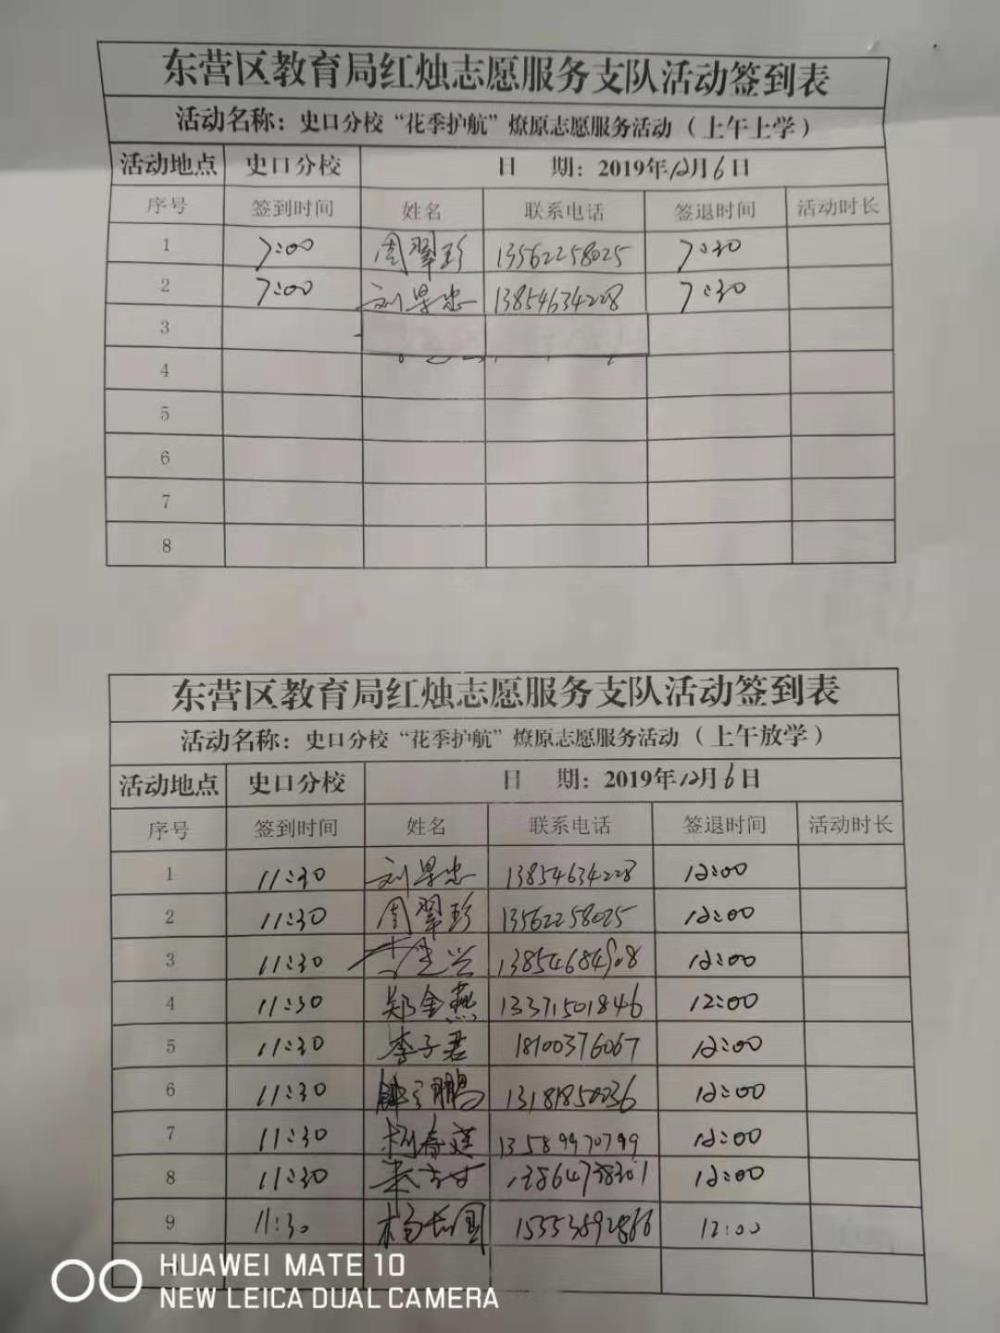 东营区教育局红烛志愿服务支队活动签到表
活动名称：史口分校“花季护航”燎原志愿服务活动（上午上学）
活动地点 史口分校 日 期：2019年12月6日
序号 签到时间 姓名 联系电话 签退时间 活动时长
1 7:00 周翠珍 13562258025 7:30
2 7:00 刘景忠 13854634228 7:30
3
4
5
6
7
8
东营区教育局红烛志愿服务支队活动签到表
活动名称：史口分校“花季护航”燎原志愿服务活动（上午放学）
活动地点 史口分校 日 期：2019年12月6日
序号 签到时间 姓名 联系电话 签退时间 活动时长
1 11:30 刘景忠 13854634228 12:00
2 11:30 周翠珍 13562258025 12:00
3 11:30 12:00
4 11:30 郑金燕 13371501846 12:00
5 11:30 李子君 18100376067 12:00
6 11:30 13181850036 12:00
7 11:30 13589970799 12:00
8 11:30 12:00
9 11:30 15553892866 12:00
HUAWEI MATE 10
NEW LEICA DUAL CAMERA